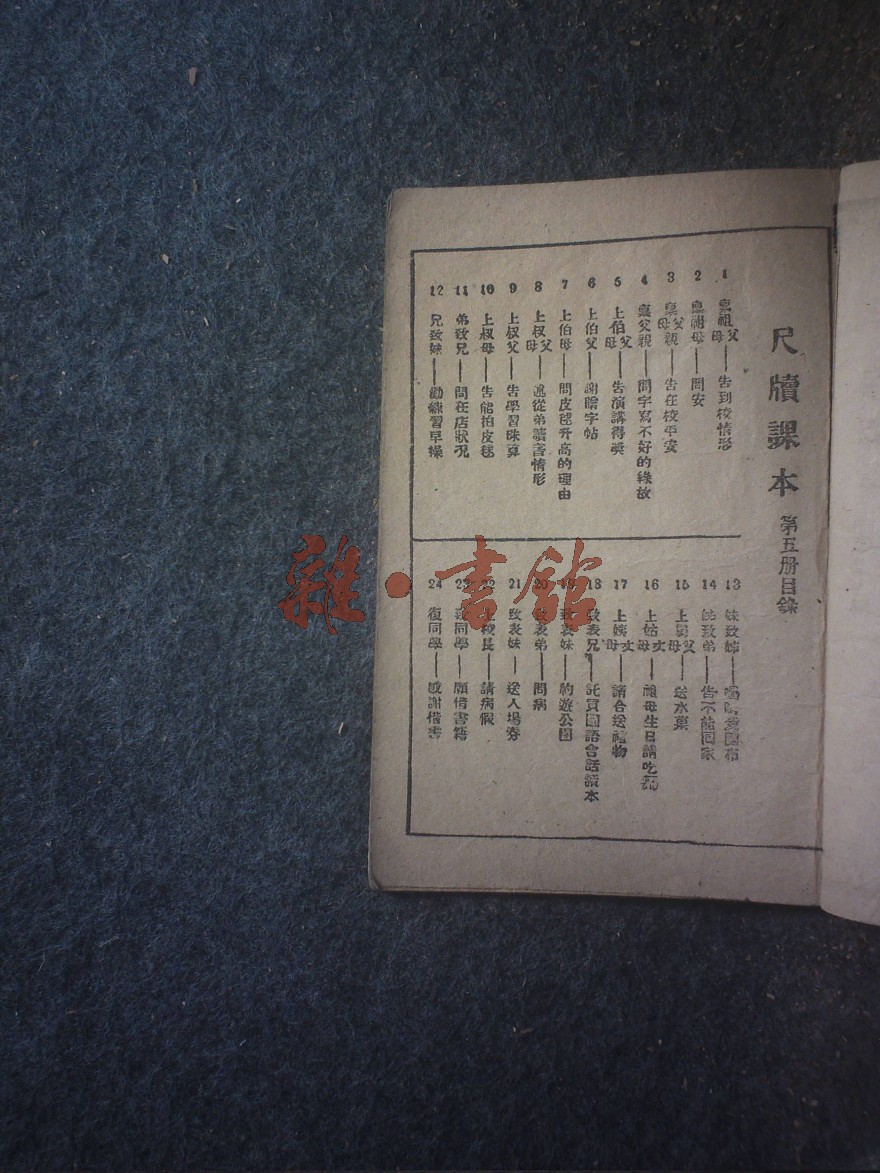 尺牘課本 第五册目錄
1 稟祖父母——告到校情形
2 稟祖母——問安
3 稟父母親——告在校平安
4 稟父親——問字寫不好的緣故
5 上伯父母——告演講得獎
6 上伯父——謝贈字帖
7 上伯母——問皮毬升高的理由
8 上叔父母——述從弟讀書情形
9 上叔父——告學習珠算
10 上叔母——告能拍皮毬
11 弟致兄——問在店狀况
12 兄致妹——勸練習早操
13 妹致姊——愛國布
14 姊致弟——告不能回家
15 上舅父母——送水菓
16 上姑丈母——祖母生日請吃麵
17 上姨丈母——請合送禮物
18 致表兄——託買國語會話讀本
19 致表妹——約遊公園
20 致表弟——問病
21 致表妹——送入場券
22 上校長——請病假
23 致同學——願借書籍
24 復同學——感謝借書
雜·書館